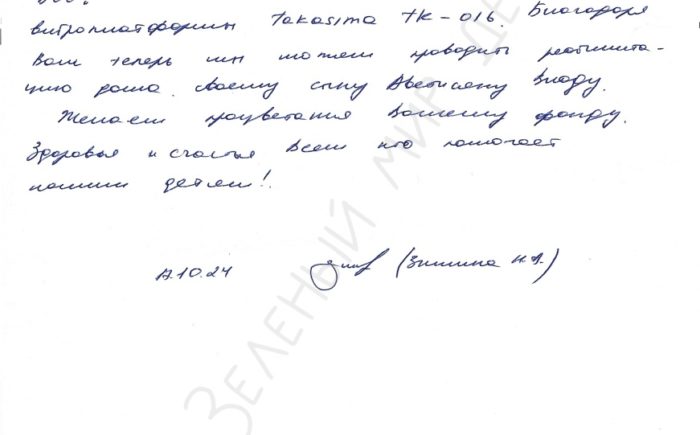 виброплатформы Takasima TK-016. Благодаря
Вам теперь мы можем проводить реабилита-
цию дома своему сыну Аветисяну Владу.
Желаем процветания Вашему фонду.
Здоровья и счастья всем кто помогает
нашим детям!
10.24
(Зимина Н.А.)
ЗЕЛЕНЫЙ МИР ДЕ